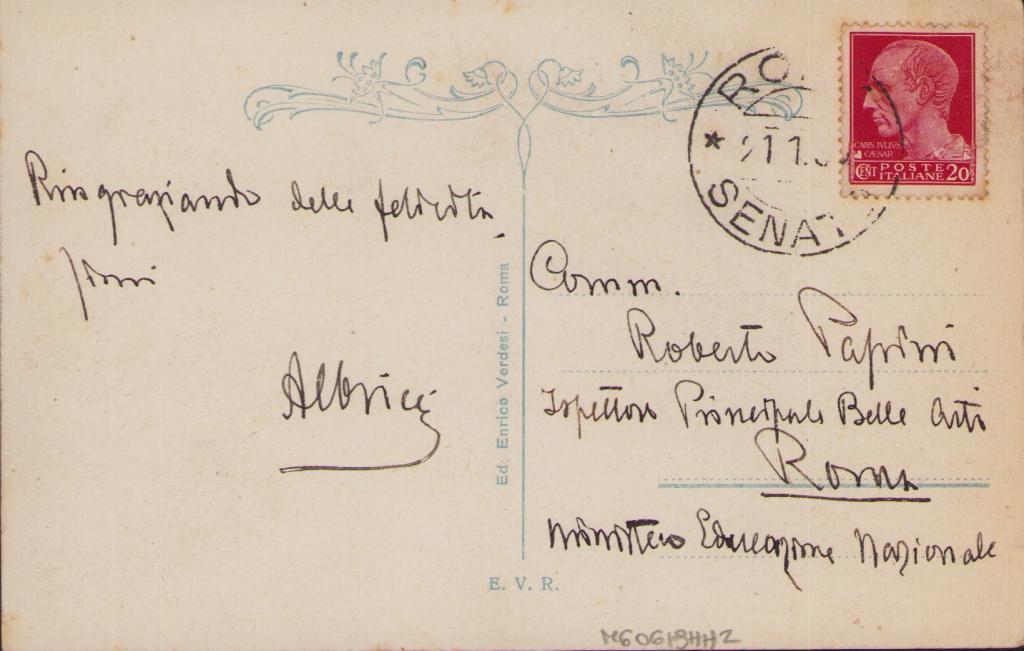 Ringraziando delle felicita-
zioni
Albricci
Ed. Enrico Verdesi - Roma
E. V. R.
ROMA
* 21 1
SENATO
CAIVS IVLIVS
CAESAR
CENT POSTE
ITALIANE 20
Comm.
Roberto Papini
Ispettore Principale Belle Arti
Roma
Ministero Educazione Nazionale